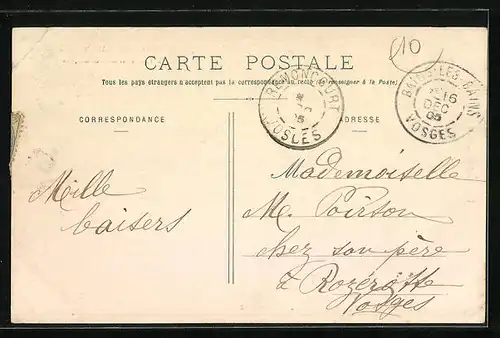 10
CARTE POSTALE
Tous les pays étrangers n'acceptent pas la correspondance au recto (Se renseigner à la Poste)
CORRESPONDANCE
ADRESSE
REMONCOURT
VOSGES
BAINS-LES-BAINS
16
DEC
05
VOSGES
Mille
baisers
Mademoiselle
M. Poirson
chez son père
à Rozerotte
Vosges